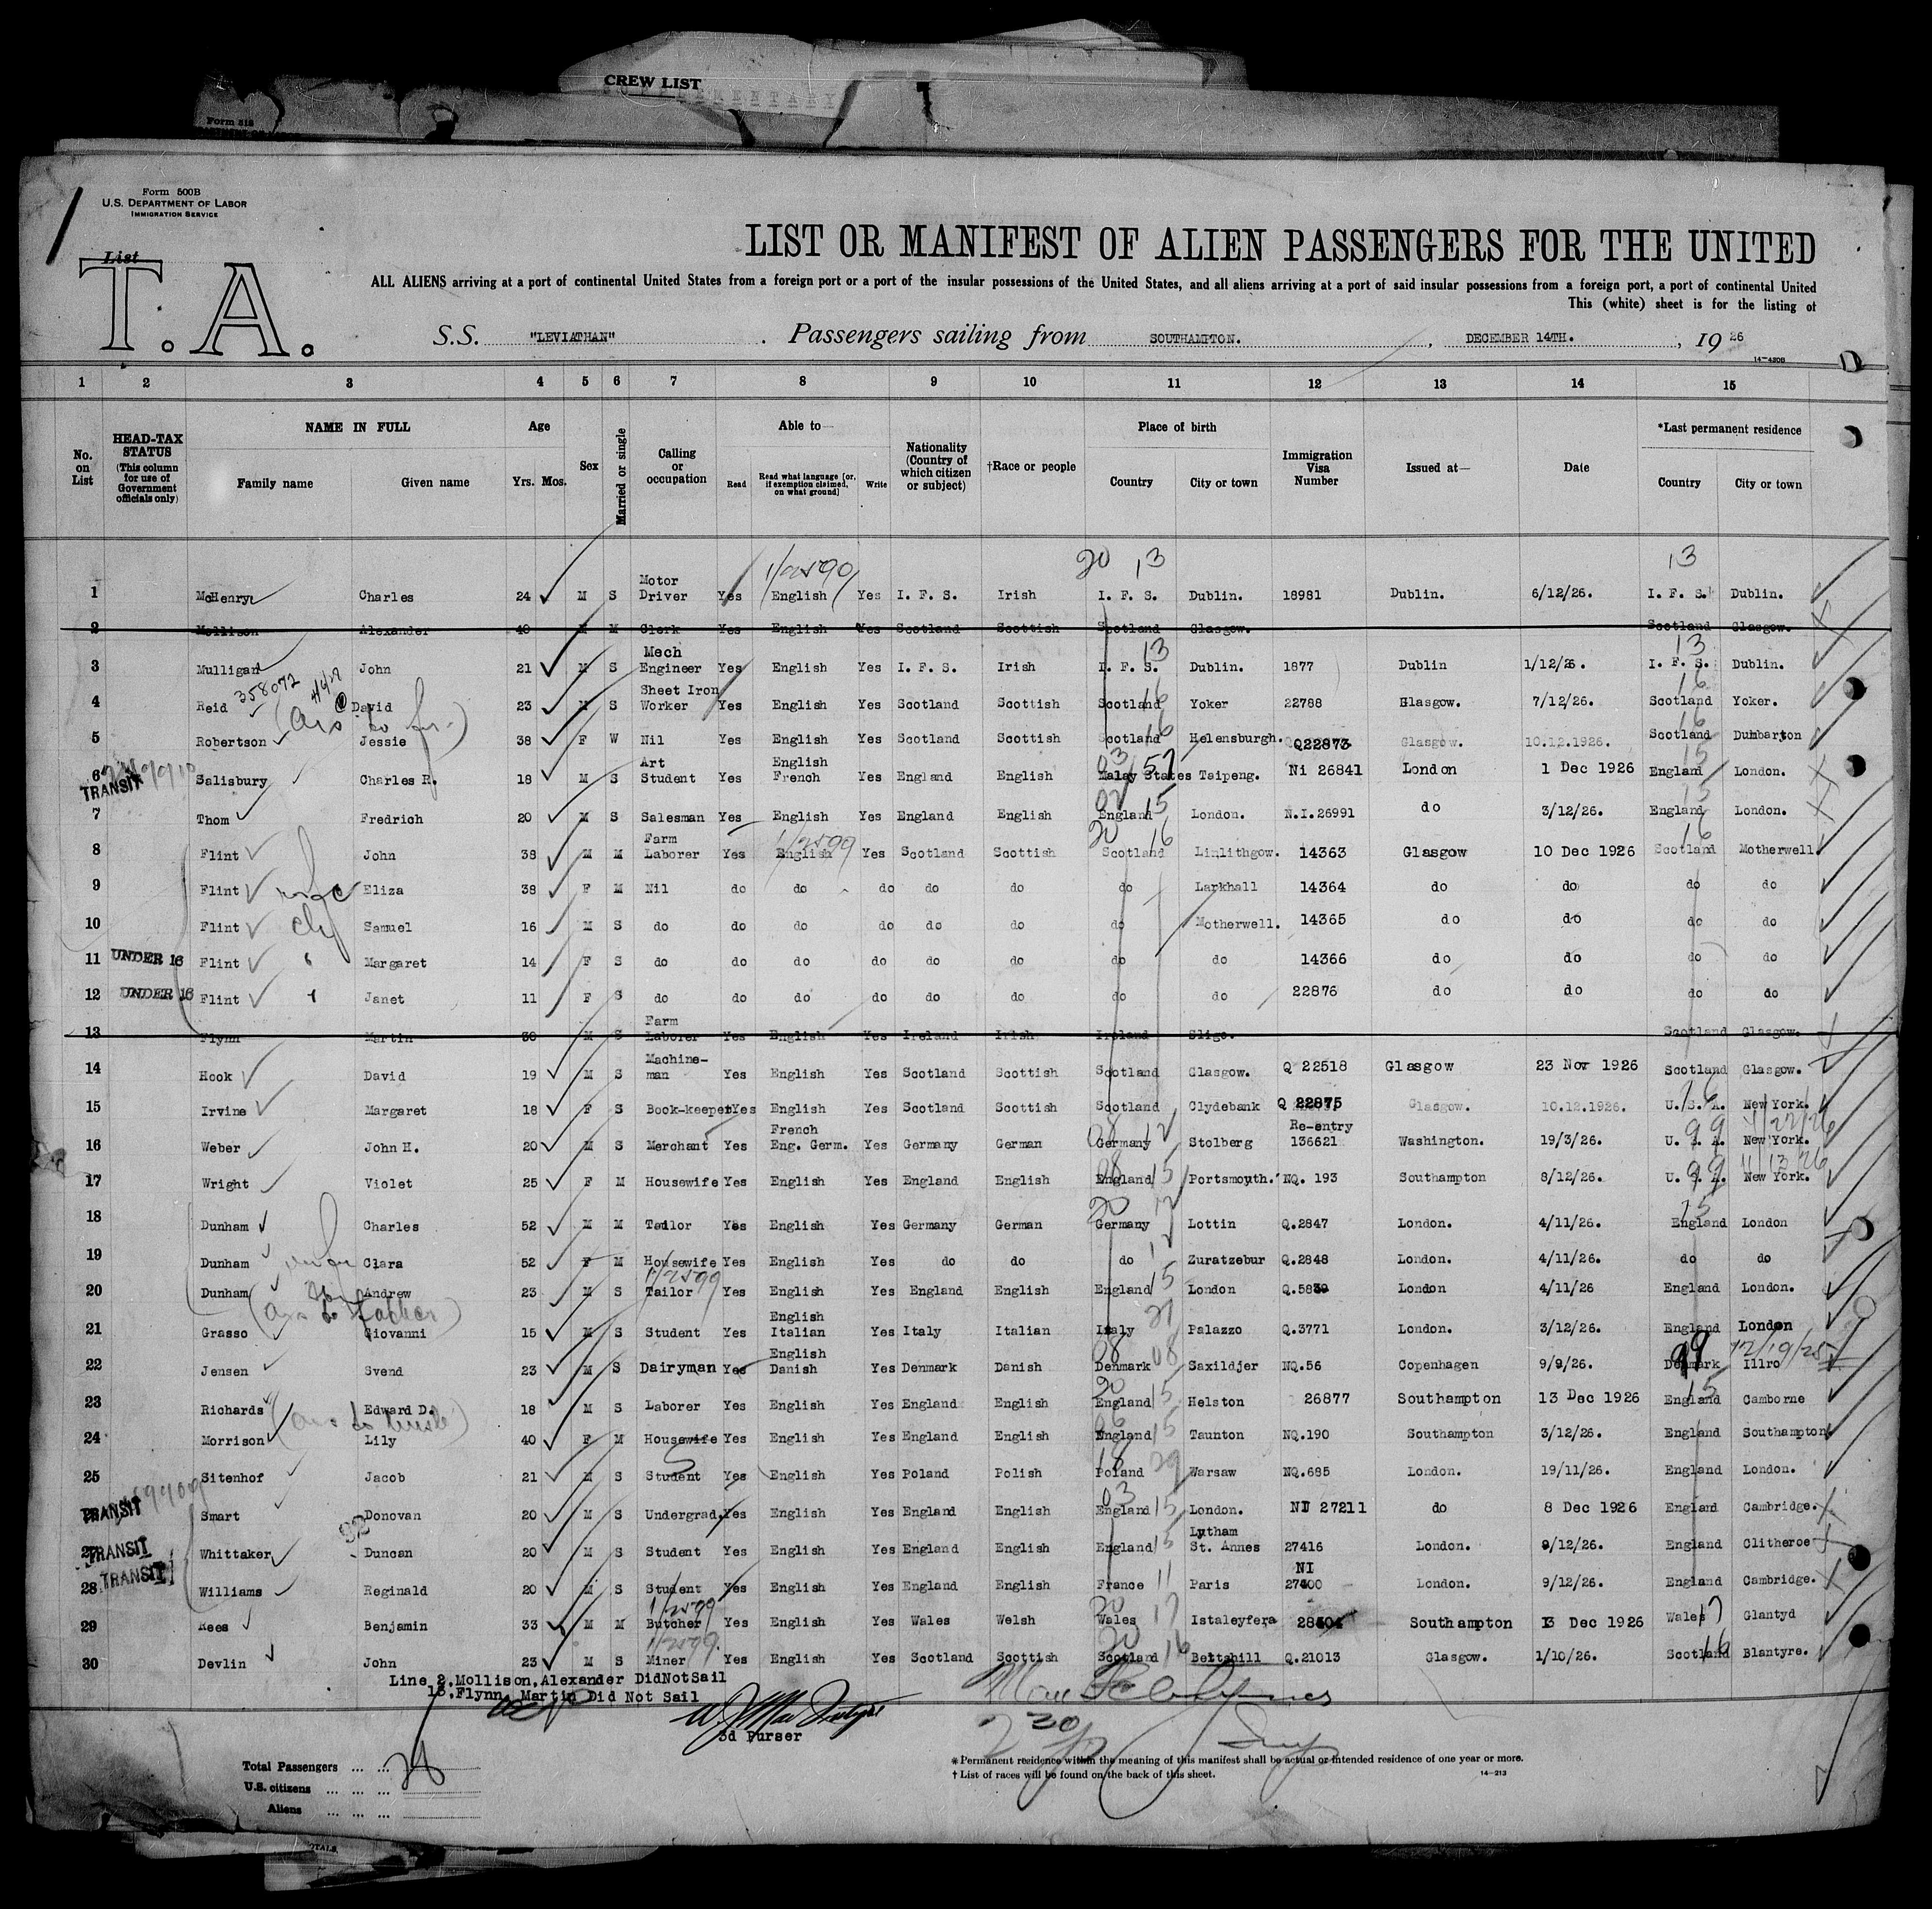 CREW LIST
SUPPLEMENTARY
Form 500B
U.S. DEPARTMENT OF LABOR
IMMIGRATION SERVICE
List
T. A.
LIST OR MANIFEST OF ALIEN PASSENGERS FOR THE UNITED
ALL ALIENS arriving at a port of continental United States from a foreign port or a port of the insular possessions of the United States, and all aliens arriving at a port of said insular possessions from a foreign port, a port of continental United
This (white) sheet is for the listing of
S.S. "LEVIATHAN" . Passengers sailing from SOUTHAMPTON. , DECEMBER 14TH. , 19 26
14-420B
1 2 3 4 5 6 7 8 9 10 11 12 13 14 15
No. on List HEAD-TAX STATUS (This column for use of Government officials only) NAME IN FULL Family name Given name Age Yrs. Mos. Sex Married or single Calling or occupation Able to— Read Read what language (or, if exemption claimed, on what ground) Write Nationality (Country of which citizen or subject) †Race or people Place of birth Country City or town Immigration Visa Number Issued at— Date *Last permanent residence Country City or town
1 McHenry Charles 24 M S Motor Driver Yes English Yes I. F. S. Irish I. F. S. Dublin. 18981 Dublin. 6/12/26. I. F. S. Dublin.
2 Mollison Alexander 40 M M Clerk Yes English Yes Scotland Scottish Scotland Glasgow. Scotland Glasgow.
3 Mulligan John 21 M S Mech Engineer Yes English Yes I. F. S. Irish I. F. S. Dublin. 1877 Dublin 1/12/26. I. F. S. Dublin.
4 Reid David 23 M S Sheet Iron Worker Yes English Yes Scotland Scottish Scotland Yoker 22788 Glasgow. 7/12/26. Scotland Yoker.
5 Robertson Jessie 38 F W Nil Yes English Yes Scotland Scottish Scotland Helensburgh. Q22873 Glasgow. 10.12.1926. Scotland Dumbarton
6 TRANSIT Salisbury Charles R. 18 M S Art Student Yes English French Yes England English Malay States Taipeng. NI 26841 London 1 Dec 1926 England London.
7 Thom Fredrich 20 M S Salesman Yes English Yes England English England London. N.I.26991 do 3/12/26. England London.
8 Flint John 38 M M Farm Laborer Yes English Yes Scotland Scottish Scotland Linlithgow. 14363 Glasgow 10 Dec 1926 Scotland Motherwell.
9 Flint wife Eliza 38 F M Nil do do do do do do Larkhall 14364 do do do do
10 Flint Samuel 16 M S do do do do do do do Motherwell. 14365 do do do do
11 UNDER 16 Flint Margaret 14 F S do do do do do do do do 14366 do do do do
12 UNDER 16 Flint Janet 11 F S do do do do do do do do 22876 do do do do
13 Flynn Martin 30 M S Farm Laborer Yes English Yes Ireland Irish Ireland Sligo. Scotland Glasgow.
14 Hook David 19 M S Machine-man Yes English Yes Scotland Scottish Scotland Glasgow. Q 22518 Glasgow 23 Nov 1926 Scotland Glasgow.
15 Irvine Margaret 18 F S Book-keeper Yes English Yes Scotland Scottish Scotland Clydebank Q 22875 Glasgow. 10.12.1926. U. S. A. New York.
16 Weber John H. 20 M S Merchant Yes French Eng. Germ. Yes Germany German Germany Stolberg Re-entry 136621 Washington. 19/3/26. U. S. A. New York.
17 Wright Violet 25 F M Housewife Yes English Yes England English England Portsmouth. NQ. 193 Southampton 8/12/26. U. S. A. New York.
18 Dunham Charles 52 M M Tailor Yes English Yes Germany German Germany Lottin Q.2847 London. 4/11/26. England London
19 Dunham Clara 52 F M Housewife Yes English Yes do do do Zuratzebur Q.2848 London. 4/11/26. do do
20 Dunham Andrew 23 M S Tailor Yes English Yes England English England London London 4/11/26 England London.
21 Grasso Giovanni 15 M S Student Yes English Italian Yes Italy Italian Italy Palazzo Q.3771 London. 3/12/26. England London
22 Jensen Svend 23 M S Dairyman Yes English Danish Yes Denmark Danish Denmark Saxildjer NQ.56 Copenhagen 9/9/26. Denmark Illro
23 Richards Edward D. 18 M S Laborer Yes English Yes England English England Helston 26877 Southampton 13 Dec 1926 England Camborne
24 Morrison Lily 40 F M Housewife Yes English Yes England English England Taunton NQ.190 Southampton 3/12/26. England Southampton
25 Sitenhof Jacob 21 M S Student Yes English Yes Poland Polish Poland Warsaw NQ.685 London. 19/11/26. England London.
26 TRANSIT Smart Donovan 20 M S Undergrad. Yes English Yes England English England London. NI 27211 do 8 Dec 1926 England Cambridge.
27 TRANSIT Whittaker Duncan 20 M S Student Yes English Yes England English England Lytham St. Annes 27416 London. 9/12/26. England Clitheroe
28 TRANSIT Williams Reginald 20 M S Student Yes English Yes England English France Paris NI 27400 London. 9/12/26. England Cambridge.
29 Rees Benjamin 33 M M Butcher Yes English Yes Wales Welsh Wales Istaleyfera Southampton 13 Dec 1926 Wales Glantyd
30 Devlin John 23 M S Miner Yes English Yes Scotland Scottish Scotland Bellshill Q.21013 Glasgow. 1/10/26. Scotland Blantyre.
Line 2,Mollison,Alexander DidNotSail
13,Flynn, Martin Did Not Sail
3d Purser
Total Passengers ... ...
U.S. citizens ... ... ...
Aliens ... ... ...
*Permanent residence within the meaning of this manifest shall be actual or intended residence of one year or more.
† List of races will be found on the back of this sheet.
14-213